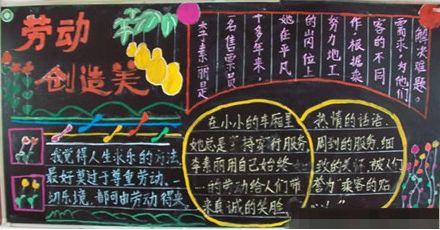 劳动
创造美
我觉得人生求乐的方法
最好莫过于尊重劳动.
切乐境,都可由劳动得来
李素丽是
名售票员
十多年来,
她在平凡
的岗位上
努力地工
作,根据乘
客的不同
需求,为他们
解决难题.
在小小的车厢里
她总是持穿行服务
李素丽用自己始终如
一的劳动给人们带
来真诚的笑脸
热情的话语、
周到的服务.细
致的关怀.被人们
誉为"乘客的贴